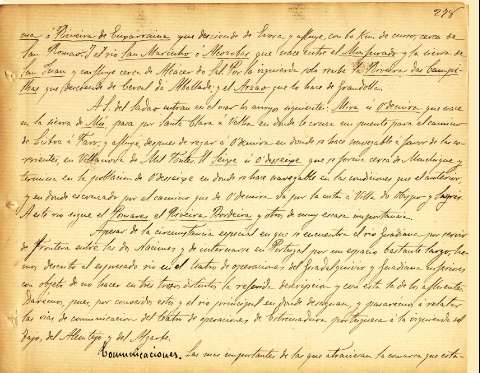 278
ma ó Riveira de Enxarraina que desciende de Evora y afluye, con 60 Km. de curso, cerca de
San Romao. Y el rio San Martinho ó Alcaçobas que nace entre el Monfurado y la sierra de
San Juan y confluye cerca de Alcacer do Sal. Por la izquierda solo recibe la Riveira das Campi-
lhas que desciende de Cercal de Alvallade, y el Arçao que lo hace de Grandolla.
Al S. del Sado entran en el mar los arroyos siguientes: Mira ú Odemira que nace
en la sierra de Mú, pasa por Santa Clara á Velha en donde le cruza un puente para el camino
de Lisboa á Faro, y afluye, despues de regar á Odemira en donde se hace navegable á favor de las co-
rrientes, en Villanova de Mil Fontes. El Seixe ú Odeseixe que se forma cerca de Monchique y
termina en la poblacion de Odeseixe en donde se hace navegable en las condiciones que el anterior,
y en donde es cruzado por el camino que de Odemira va por la costa á Villa do Obispo y Sagres.
A este rio sigue el y otros de muy escasa importancia.
Apesar de la circunstancia especial en que se encuentra el rio Guadiana por servir
de frontera entre las dos Naciones y de internarse en Portugal por un espacio bastante largo, he-
mos descrito el expresado rio en el teatro de operaciones del Guadalquivir y Guadiana inferiores
con objeto de no hacer en dos trozos distintos la referida descripcion y con esta la de los afluentes.
Daremos, pues, por conocidos estos y el rio principal en donde desaguan, y pasaremos a relatar
las vias de comunicacion del teatro de operaciones de Extremadura portuguesa á la izquierda del
Tajo, del Alentejo y del Algarbe.
Comunicaciones. Las mas importantes de las que atraviesan la comarca que esta-